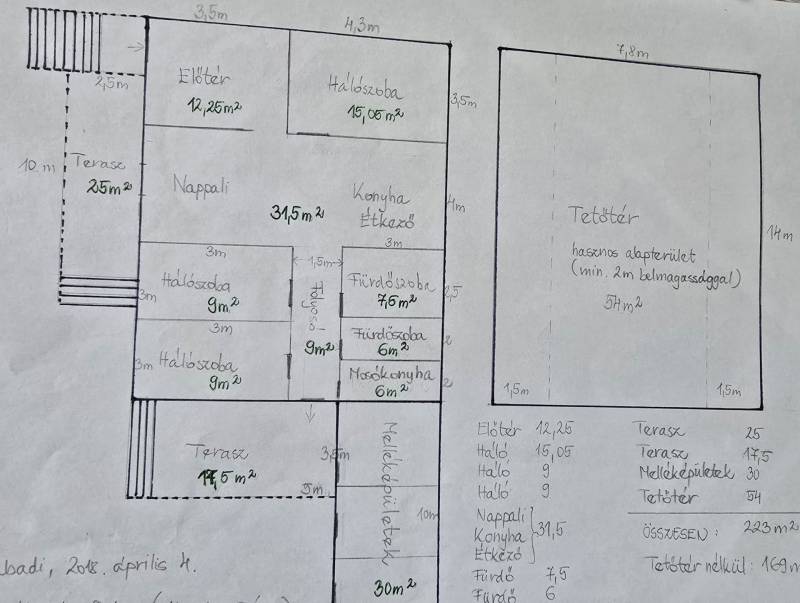 3,5m
4,3m
7,8m
2,5m
Előtér
12,25m²
Hálószoba
15,05m²
3,5m
10 m
Terasz
25m²
Nappali
31,5m²
Konyha
Étkező
4m
Tetőtér
hasznos alapterület
(min. 2m belmagassággal)
54m²
14m
3m
1,5m
3m
Hálószoba
9m²
3m
Folyosó
9m²
Fürdőszoba
7,5m²
2,5
3m
Hálószoba
9m²
3m
Fürdőszoba
6m²
2
Mosókonyha
6m²
2
1,5m
1,5m
Terasz
17,5m²
3,5m
5m
Melléképületek
10m
30m²
Előtér 12,25
Háló 15,05
Háló 9
Háló 9
Nappali
Konyha 31,5
Étkező
Fürdő 7,5
Fürdő 6
Terasz 25
Terasz 17,5
Melléképületek 30
Tetőtér 54
ÖSSZESEN: 223m²
Tetőtér nélkül: 169m
badi, 2018. április 4.